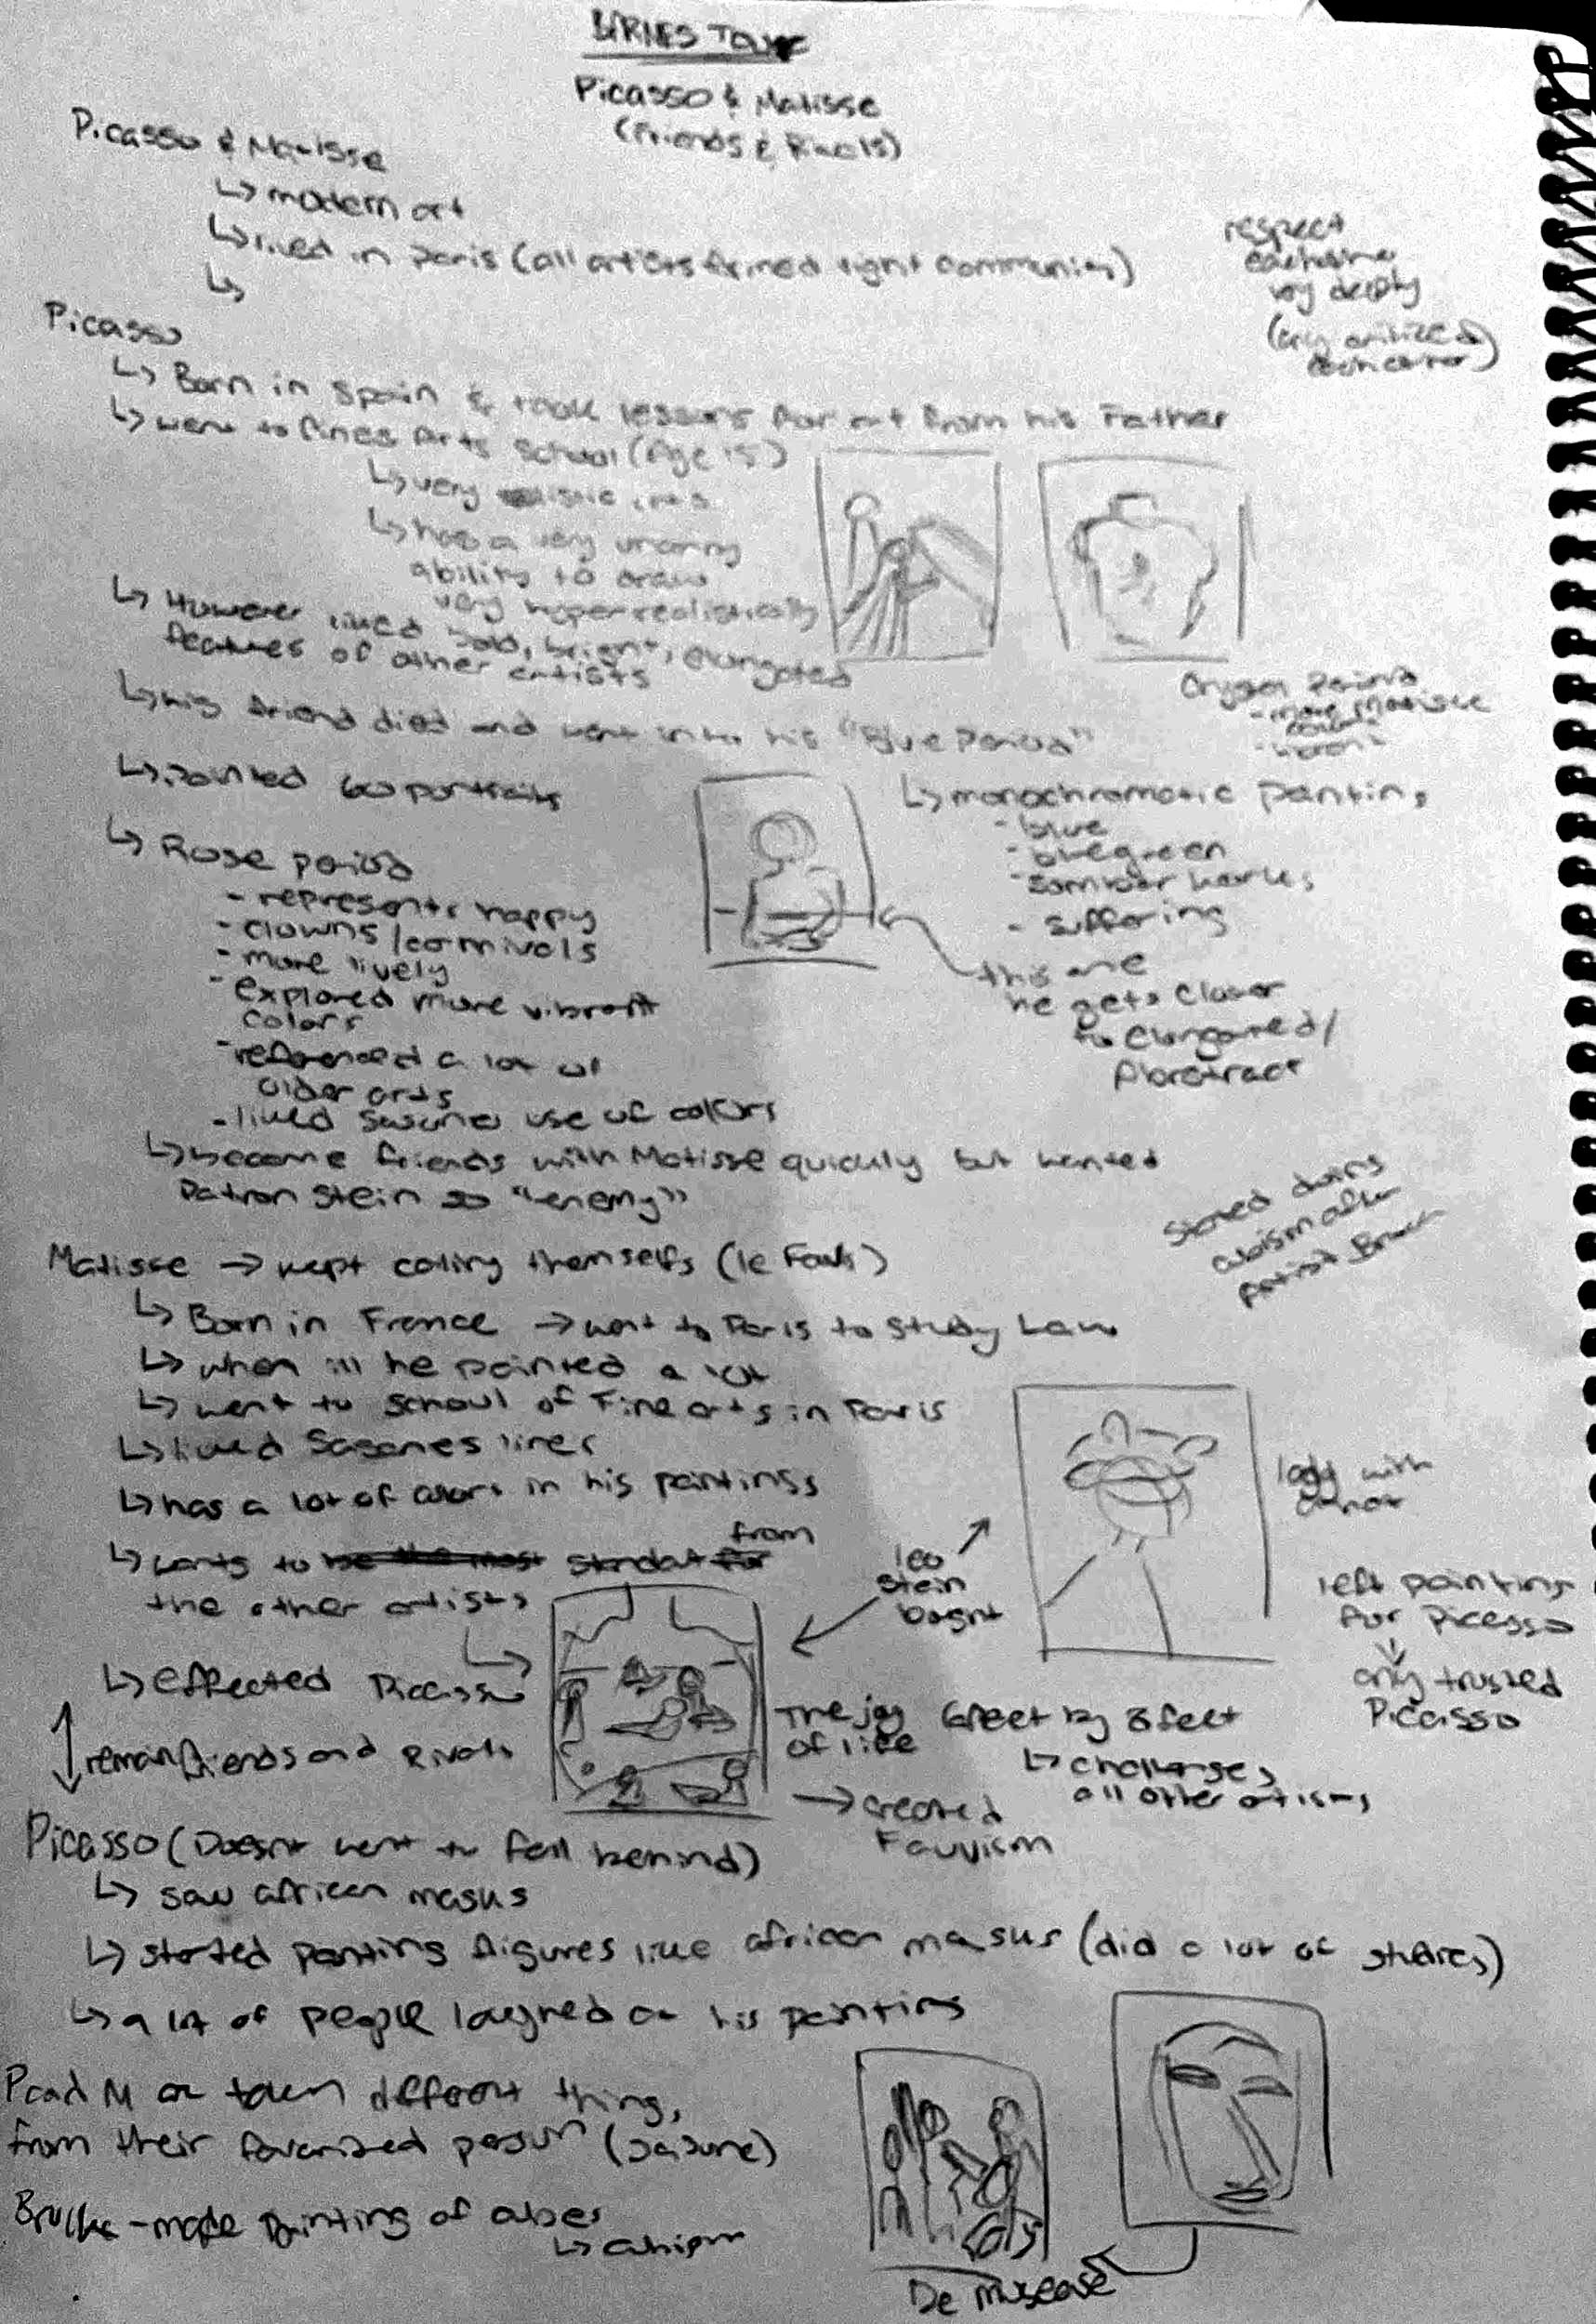 Picasso & Matisse
(Friends & Rivals)
Picasso & Matisse
↳ modern art
↳ lived in Paris (all artists formed tight community)
↳
respect
eachother
very deeply
Picasso
↳ Born in Spain & took lessons for art from his Father
↳ went to fines Arts School (Age 15)
↳ very
↳ has a very uncanny
ability to draw
very hyperrealistically
↳ However liked bold, bright, elongated
features of other artists
↳ his friend died and went into his "Blue Period"
↳ Painted 60 portraits
↳ monochromatic painting
- blue
- bluegreen
- suffering
this one
he gets closer
to elongated/
↳ Rose period
- represents happy
- clowns / carnivals
- more lively
- explored more vibrant
colors
- referenced a lot of
older arts
- liked use of colors
↳ became friends with Matisse quickly but wanted
Patron Stein so "enemy"
Started doing
cubism after
Matisse → kept calling themselfs
↳ Born in France → went to Paris to Study Law
↳ when ill he painted a lot
↳ went to school of Fine arts in Paris
↳ liked Sasanes lines
↳ has a lot of colors in his paintings
from
↳ wants to
the other artists
leo
stein
lady with
left painting
for Picasso
↓
only trusted
Picasso
↳ effected Picasso
↕ remain friends and Rivals
The joy
of life
6feet by 8feet
↳ challenges
all other artists
→ created
Fauvism
Picasso (Doesnt want to fall behind)
↳ saw african masks
↳ started painting figures like african masks (did a lot of studies)
↳ a lot of people laughed at his painting
P and M taken different things
from their favorized person
made painting of cubes
De